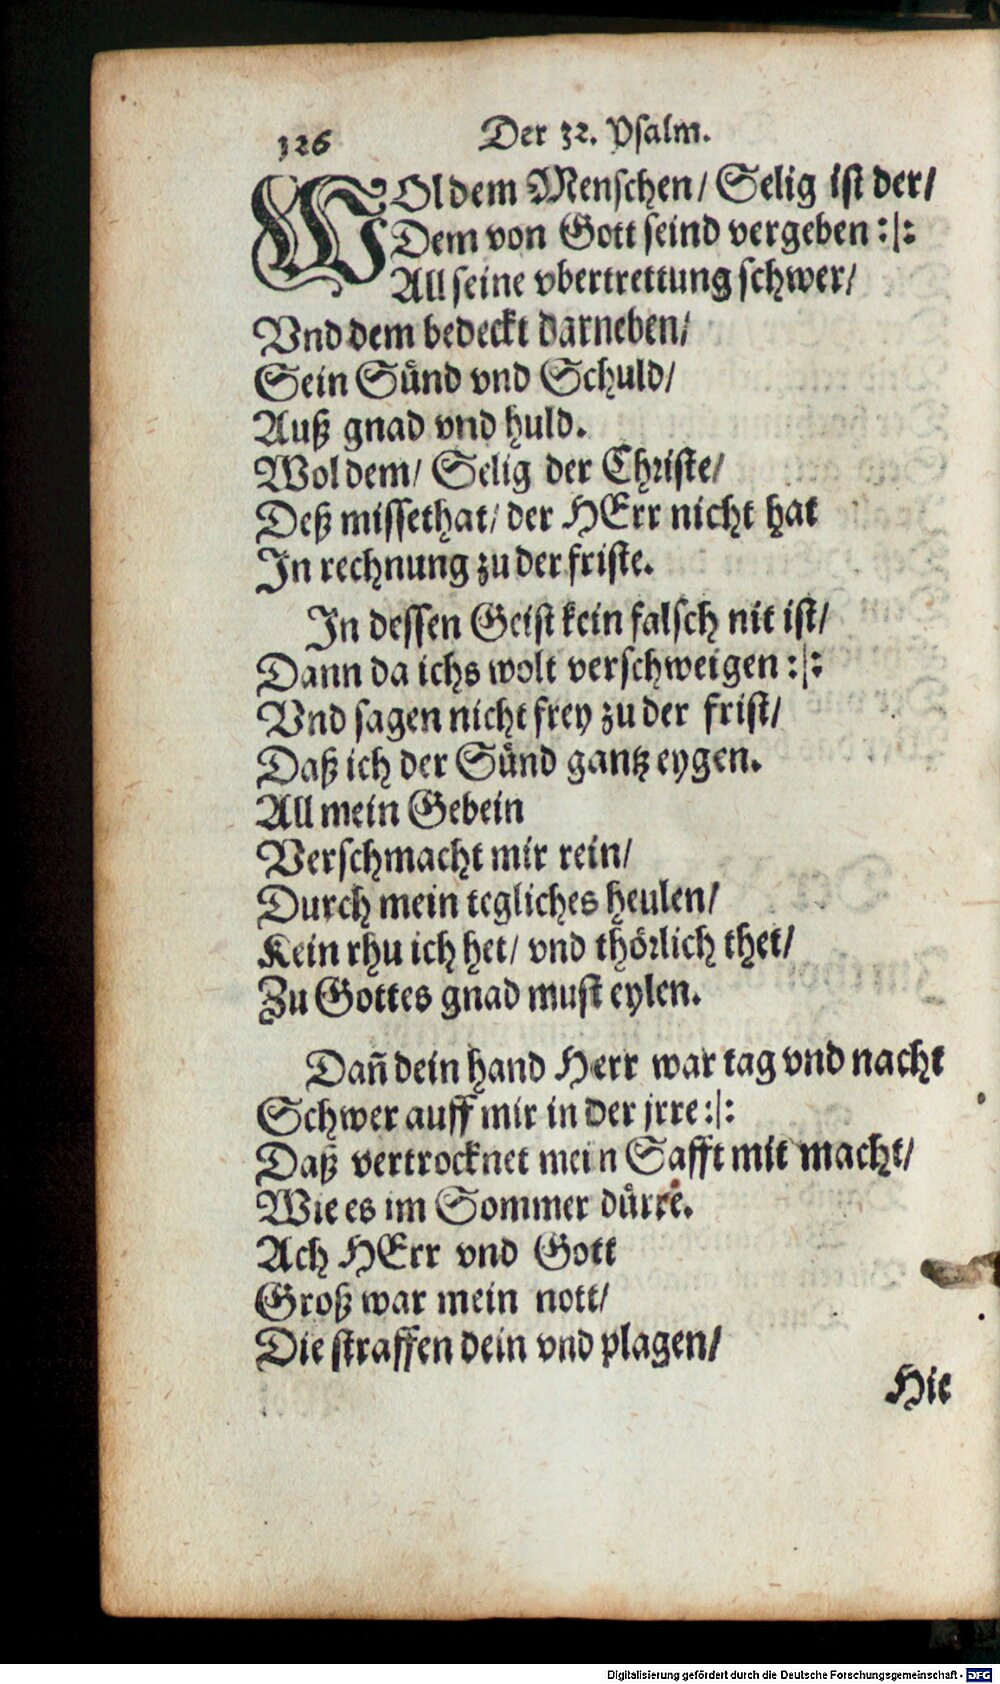 126 Der 32. Psalm.
WOl dem Menschen/ Selig ist der/
Dem von Gott seind vergeben :|:
All seine vbertrettung schwer/
Vnd dem bedeckt darneben/
Sein Sünd vnd Schuld/
Auß gnad vnd huld.
Wol dem/ Selig der Christe/
Deß missethat/ der HErr nicht hat
In rechnung zu der friste.
In dessen Geist kein falsch nit ist/
Dann da ichs wolt verschweigen :|:
Vnd sagen nicht frey zu der frist/
Daß ich der Sünd gantz eygen.
All mein Gebein
Verschmacht mir rein/
Durch mein tegliches heulen/
Kein rhu ich het/ vnd thörlich thet/
Zu Gottes gnad must eylen.
Dan̄ dein hand Herr war tag vnd nacht
Schwer auff mir in der jrre :|:
Daß vertrocknet mein Safft mit macht/
Wie es im Sommer dürre.
Ach HErr vnd Gott
Groß war mein nott/
Die straffen dein vnd plagen/
Hie
Digitalisierung gefördert durch die Deutsche Forschungsgemeinschaft - DFG